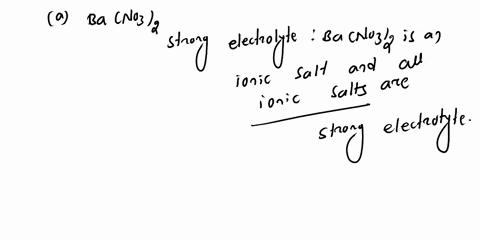 (a) Ba(NO3)2
strong electrolyte : Ba(NO3)2 is a,
ionic salt and all
ionic salts are
strong electrolyte.